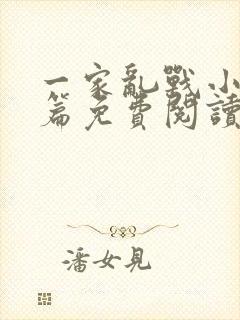 一家亂戰小
篇免費閱讀
潘女見